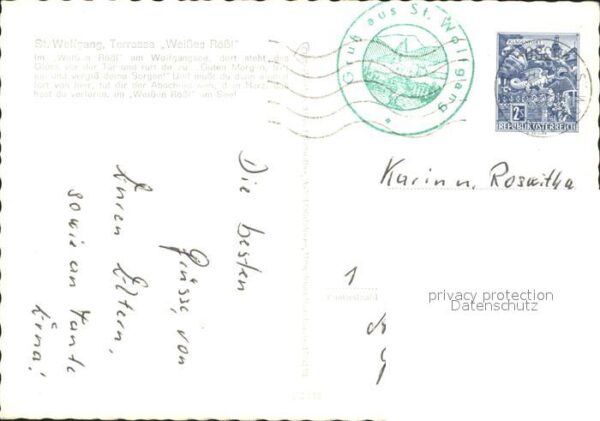 St. Wolfgang, Terrasse „Weißes Rößl"
Im „Weißen Rößl" am Wolfgangsee, dort steht das
Glück vor der Tür und ruft dir zu: „Guten Morgen, tritt
ein und vergiß deine Sorgen!" Und mußt du dann einmal
fort von hier, tut dir der Abschied weh, dein Herz, das
hast du verloren, im „Weißen Rößl" am See!
Gruß aus St. Wolfgang
2 S
REPUBLIK ÖSTERREICH
Karin u. Roswitha
Die besten
Grüsse, von
Euren Eltern,
sowie an Tante
Erna!
1
Postleitzahl
privacy protection
Datenschutz